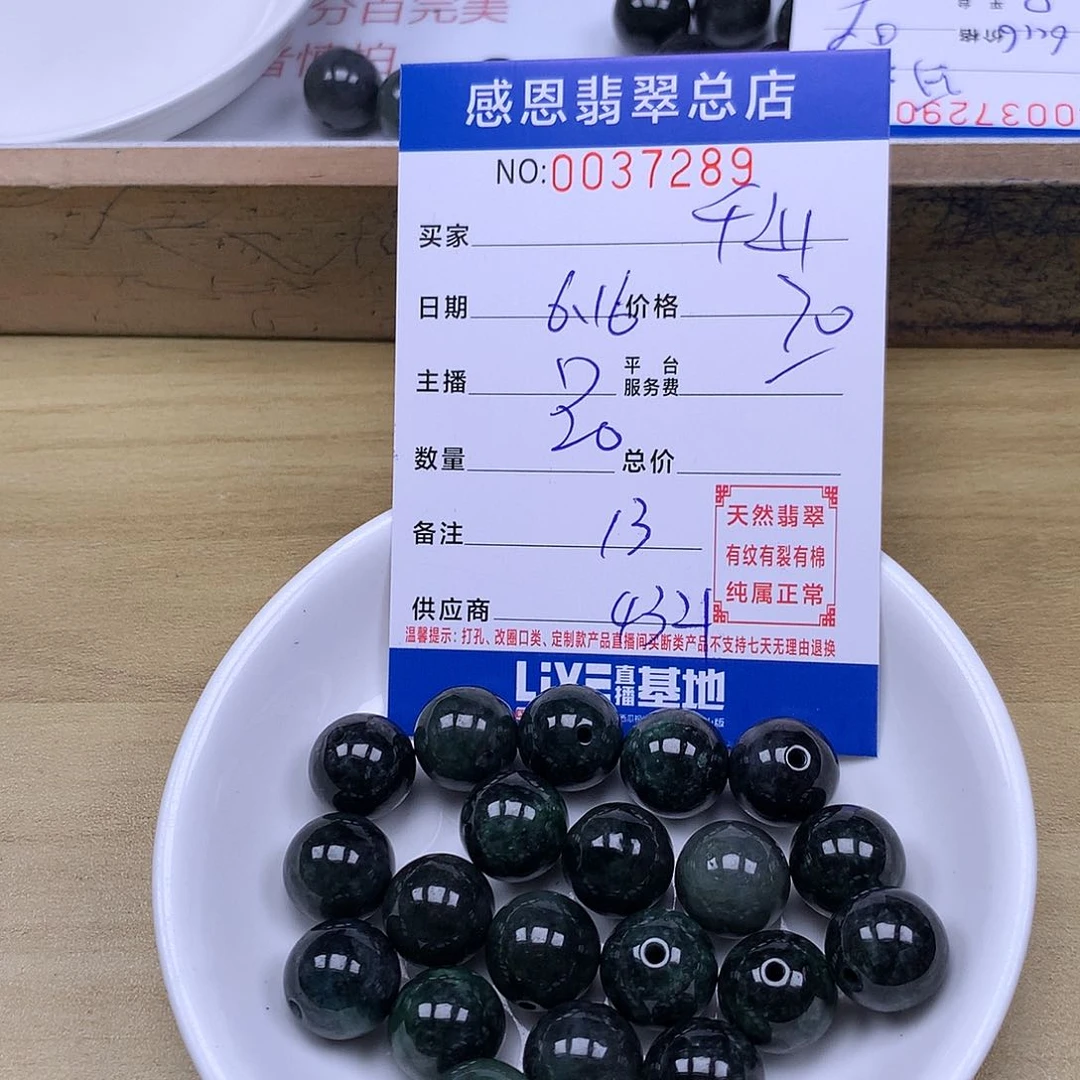 分百完美
音慎拍
0037290
感恩翡翠总店
NO:0037289
买家
日期 6.16 价格 70
主播 平台服务费
数量 20 总价
备注 13
供应商 4321
天然翡翠
有纹有裂有棉
纯属正常
温馨提示：打孔、改圈口类、定制款产品直播间买断类产品不支持七天无理由退换
LiVE直播基地